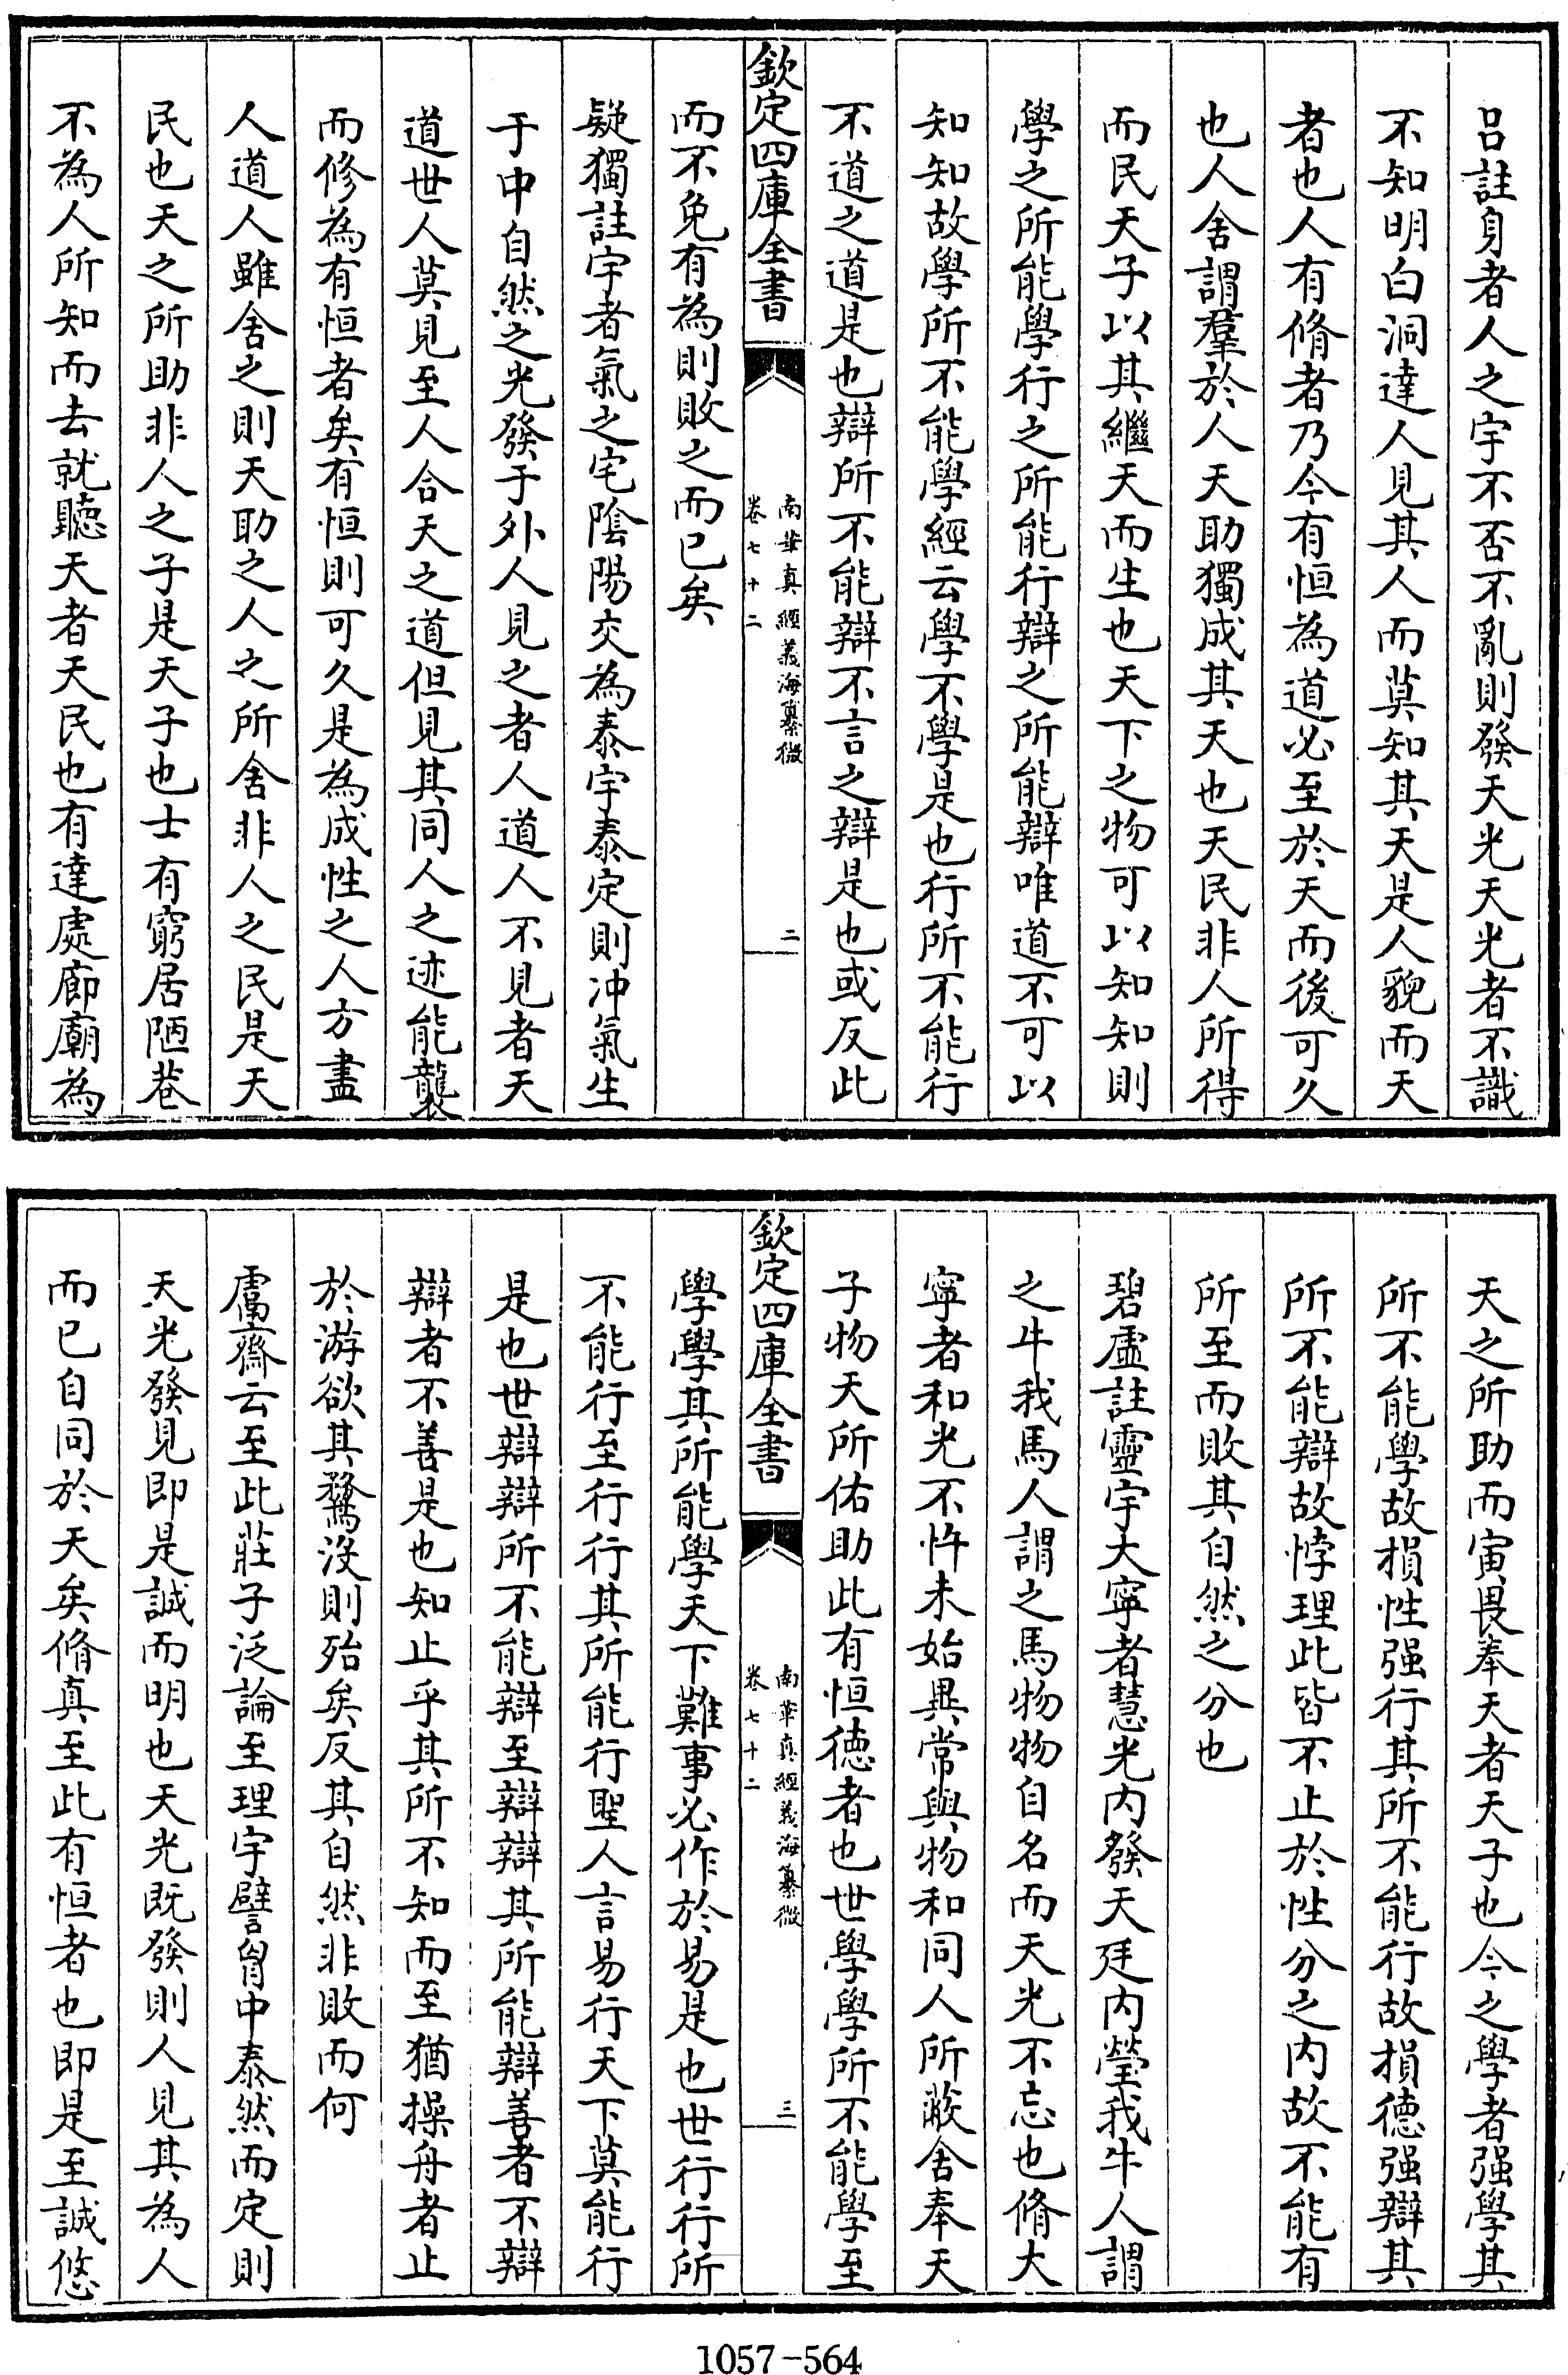 呂註身者人之宇不否不亂則發天光天光者不識
不知明白洞達人見其人而莫知其天是人貌而天
者也人有脩者乃今有恒為道必至於天而後可久
也人舍謂羣於人天助獨成其天也天民非人所得
而民天子以其繼天而生也天下之物可以知知則
學之所能學行之所能行辯之所能辯唯道不可以
知知故學所不能學經云學不學是也行所不能行
不道之道是也辯所不能辯不言之辯是也或反此
欽定四庫全書
南華真經義海纂微
卷七十二
二
而不免有為則敗之而已矣
疑獨註宇者氣之宅陰陽交為泰宇泰定則冲氣生
于中自然之光發于外人見之者人道人不見者天
道世人莫見至人合天之道但見其同人之迹能襲
而修為有恒者矣有恒則可久是為成性之人方盡
人道人雖舍之則天助之人之所舍非人之民是天
民也天之所助非人之子是天子也士有窮居陋巷
不為人所知而去就聽天者天民也有達處廊廟為
天之所助而寅畏奉天者天子也今之學者强學其
所不能學故損性强行其所不能行故損德强辯其
所不能辯故悖理此皆不止於性分之內故不能有
所至而敗其自然之分也
碧虛註靈宇大寧者慧光内發天廷内瑩我牛人謂
之牛我馬人謂之馬物物自名而天光不忘也脩大
寧者和光不忤未始異常與物和同人所蔽舍奉天
子物天所佑助此有恒德者也世學學所不能學至
欽定四庫全書
南華真經義海纂微
卷七十二
三
學學其所能學天下難事必作於易是也世行行所
不能行至行行其所能行聖人言易行天下莫能行
是也世辯辯所不能辯至辯辯其所能辯善者不辯
辯者不善是也知止乎其所不知而至猶操舟者止
於游欲其鶩沒則殆矣反其自然非敗而何
鬳齋云至此莊子泛論至理宇譬胷中泰然而定則
天光發見即是誠而明也天光既發則人見其為人
而已自同於天矣脩真至此有恒者也即是至誠悠
1057-564